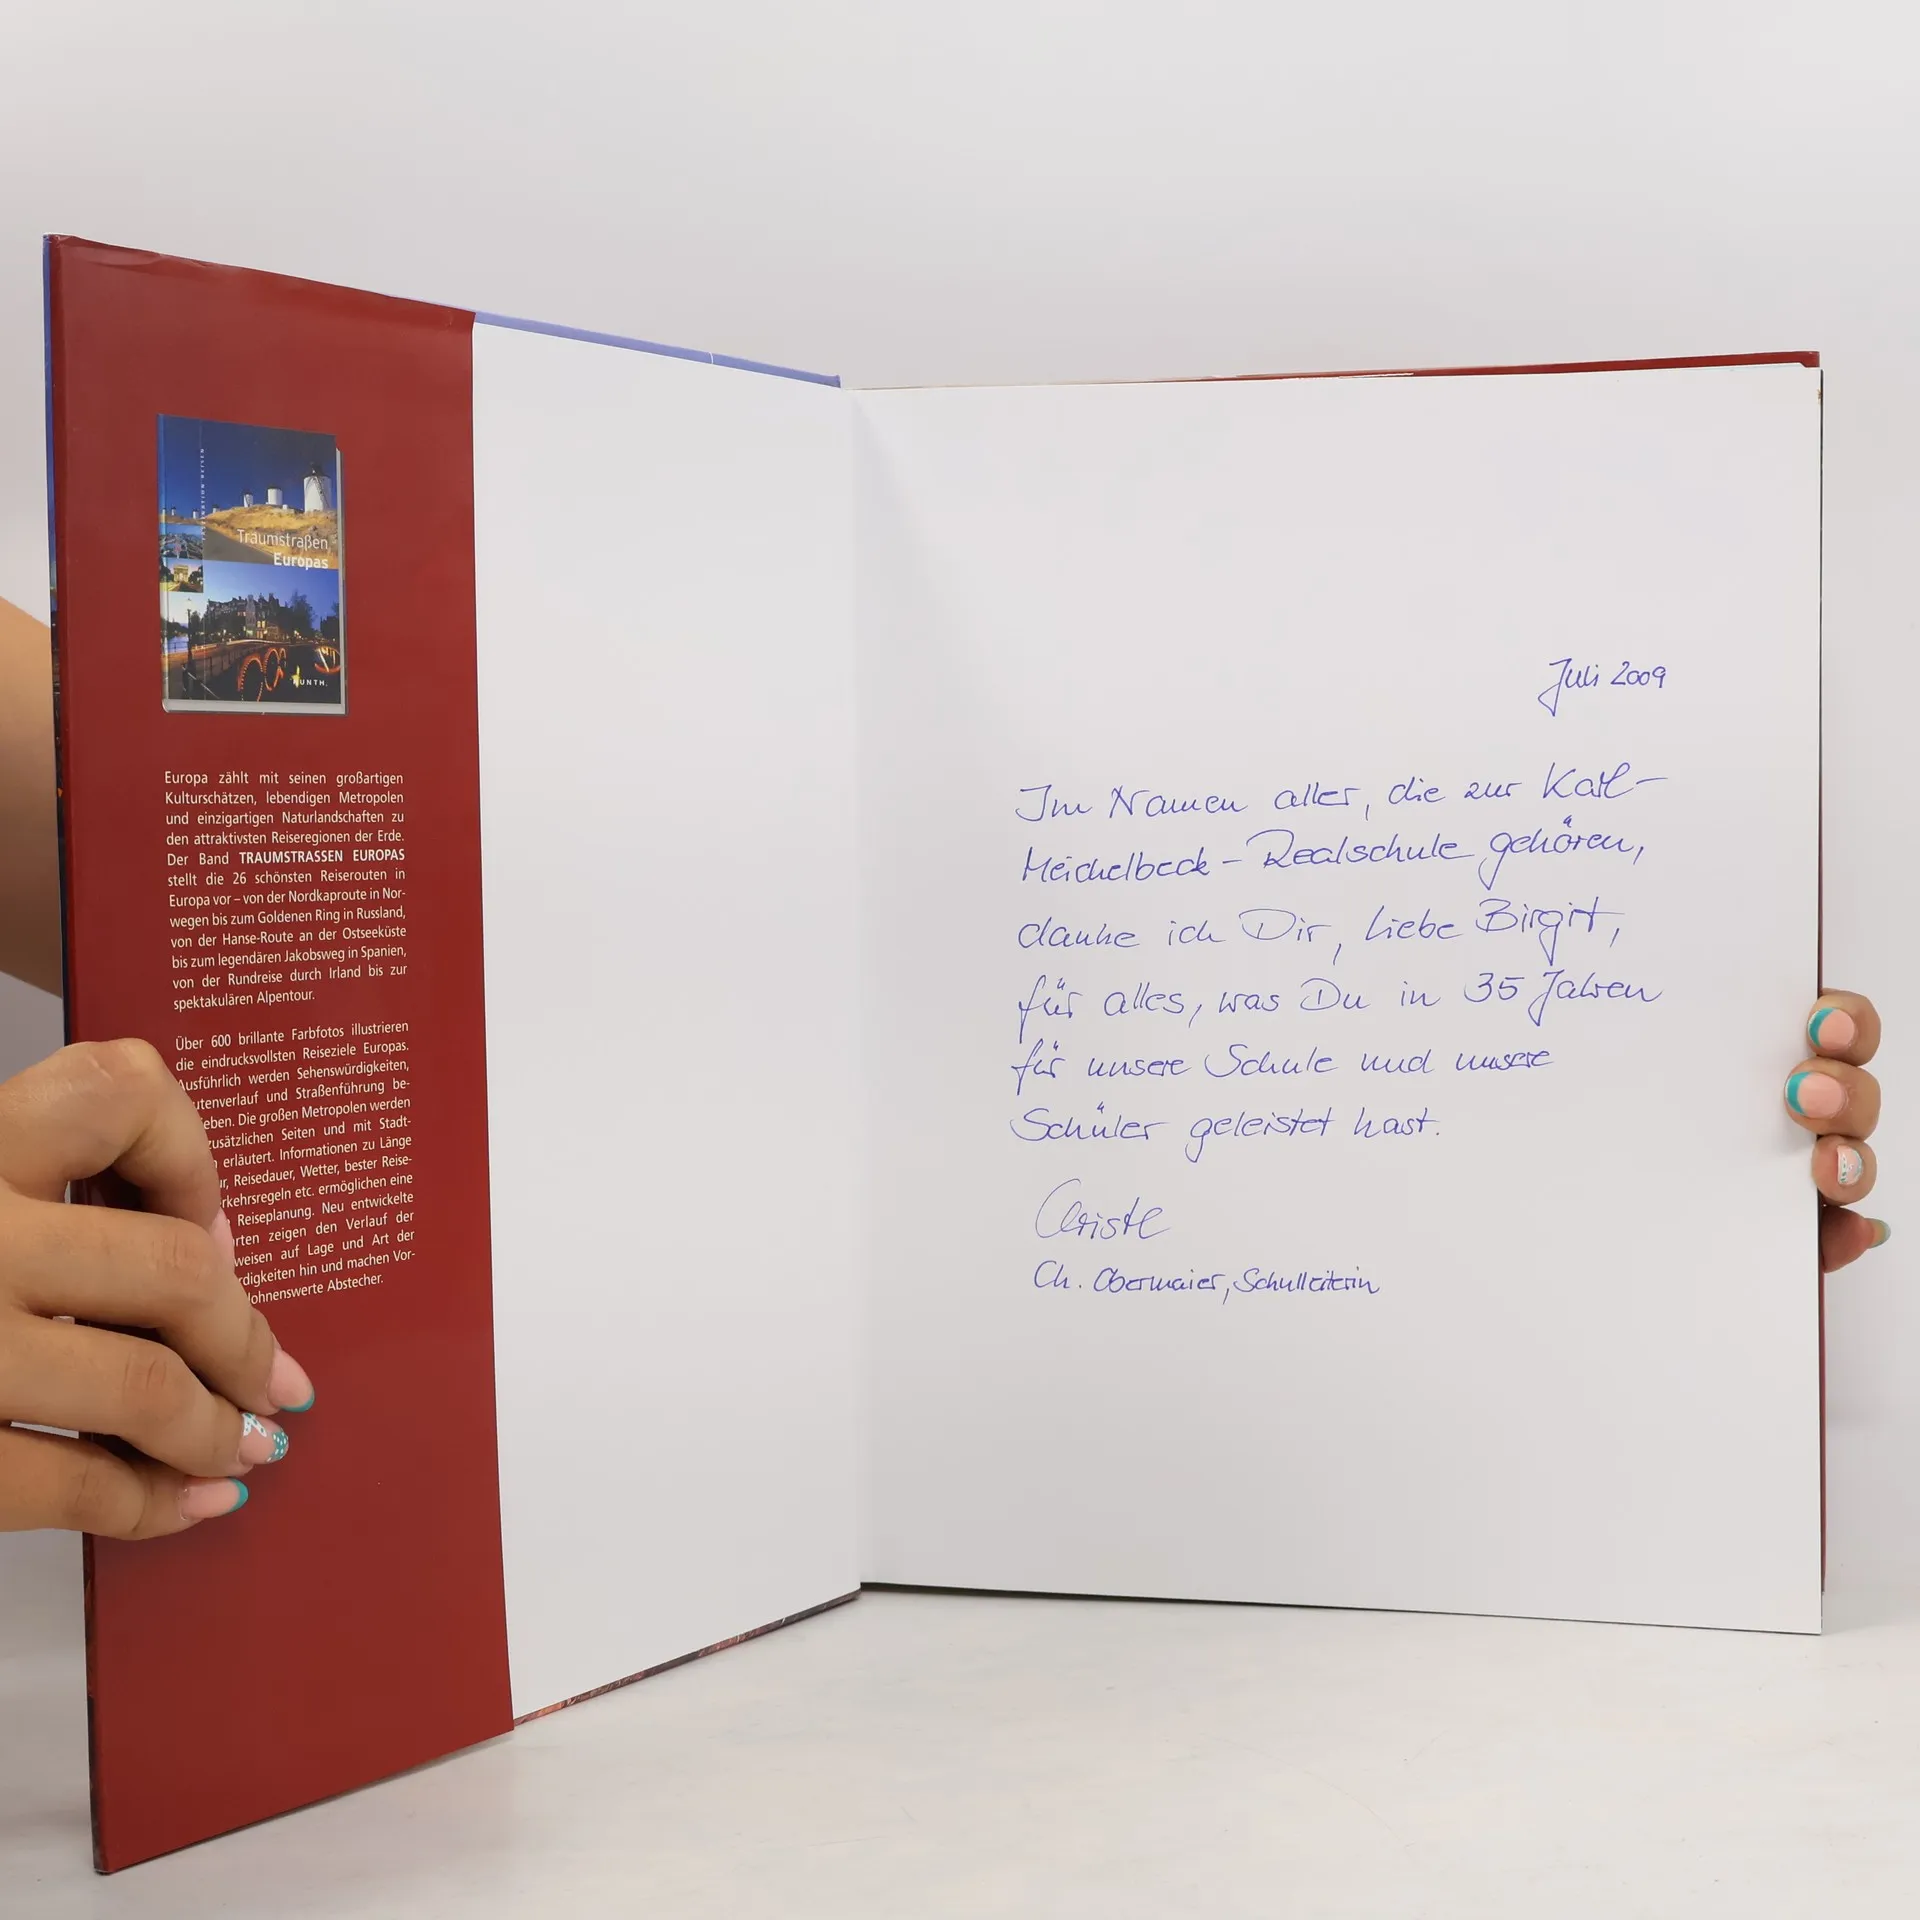 FASZINATION REISEN
Traumstraßen
Europas
KUNTH.
Europa zählt mit seinen großartigen
Kulturschätzen, lebendigen Metropolen
und einzigartigen Naturlandschaften zu
den attraktivsten Reiseregionen der Erde.
Der Band TRAUMSTRASSEN EUROPAS
stellt die 26 schönsten Reiserouten in
Europa vor – von der Nordkaproute in Nor-
wegen bis zum Goldenen Ring in Russland,
von der Hanse-Route an der Ostseeküste
bis zum legendären Jakobsweg in Spanien,
von der Rundreise durch Irland bis zur
spektakulären Alpentour.
Über 600 brillante Farbfotos illustrieren
die eindrucksvollsten Reiseziele Europas.
Ausführlich werden Sehenswürdigkeiten,
utenverlauf und Straßenführung be-
ieben. Die großen Metropolen werden
zusätzlichen Seiten und mit Stadt-
n erläutert. Informationen zu Länge
ur, Reisedauer, Wetter, bester Reise-
rkehrsregeln etc. ermöglichen eine
Reiseplanung. Neu entwickelte
rten zeigen den Verlauf der
weisen auf Lage und Art der
rdigkeiten hin und machen Vor-
lohnenswerte Abstecher.
Juli 2009
Im Namen aller, die zur Karl-
Meichelbeck-Realschule gehören,
danke ich Dir, liebe Birgit,
für alles, was Du in 35 Jahren
für unsere Schule und unsere
Schüler geleistet hast.
Christl
Ch. Obermaier, Schulleiterin